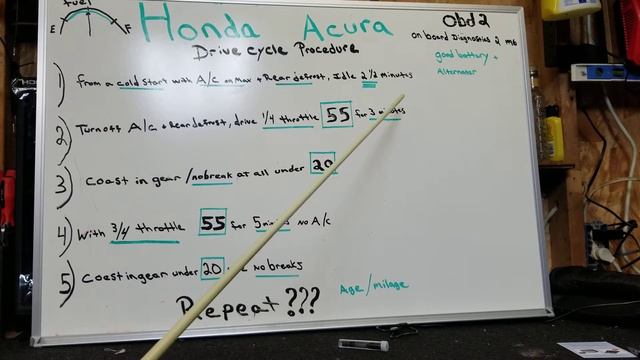 fuel
E F
Honda Acura
Drive cycle Procedure
Obd2
on board Diagnostics 2
good battery +
Alternator
1) from a cold start with A/C on Max + Rear defrost, Idle 2 1/2 minutes
2) Turn off A/C + Rear defrost, drive 1/4 throttle 55 for 3 minutes
3) Coast in gear / no break at all under 20
4) With 3/4 throttle 55 for 5 No A/C
5) Coast in gear under 20 No breaks
Repeat ???
Age/milage